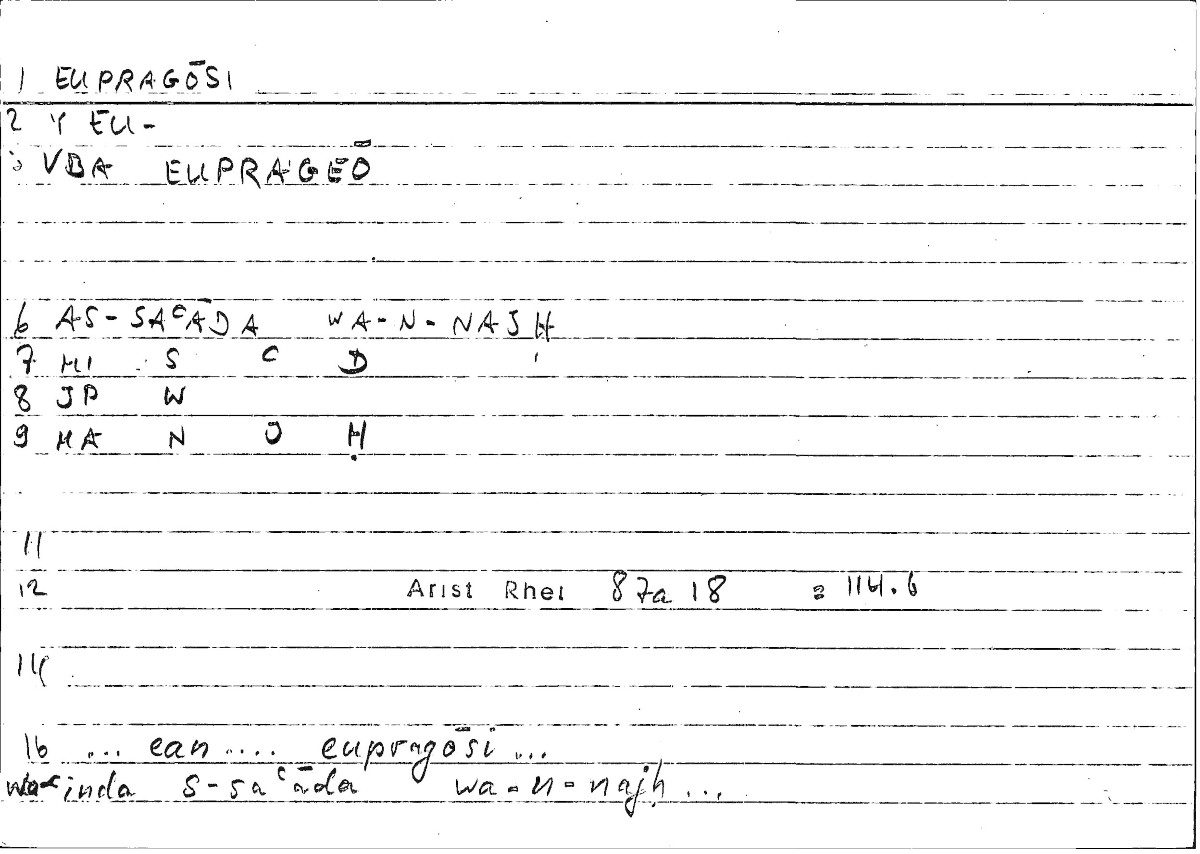 1 EUPRAGŌSI
2 Y EU-
VBA EUPRAGEŌ
6 AS-SAʿĀDA WA-N-NAJḤ
7 MI S ʿ D
8 JP W
9 MA N J Ḥ
11
12 Arist Rhet 87a 18 = 114.6
14
16 ... ean .... eupragōsi ...
wa-ʿinda s-saʿāda wa-n-najḥ ...